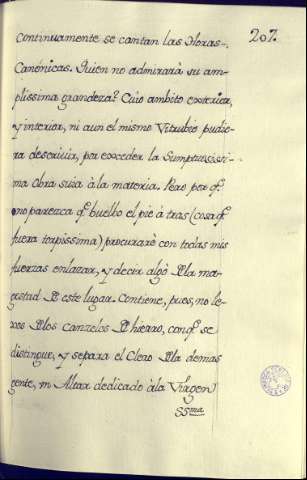 207.
continuamente se cantan las Horas
Canónicas. Quien no admirarà su am-
plissima grandeza? Cuio ambito exterior,
y interior, ni aun el mismo Vitrubio pudie-
ra descrivir, por exceder la Sumptuosissi-
ma obra suia à la materia. Pero por q.^e
no parezca q.^e buelbo el pie à tras (cosa q.^e
fuera torpissima) procurarè con todas mis
fuerzas enlazar, y decir algo Đ la ma-
gestad Đ este lugar. Contiene, pues, no le-
xos Đ los canzelos Đ hierro, con q.^e se
distingue, y separa el Clero Đ la demas
gente, un Altar dedicado à la Virgen
SS^ma